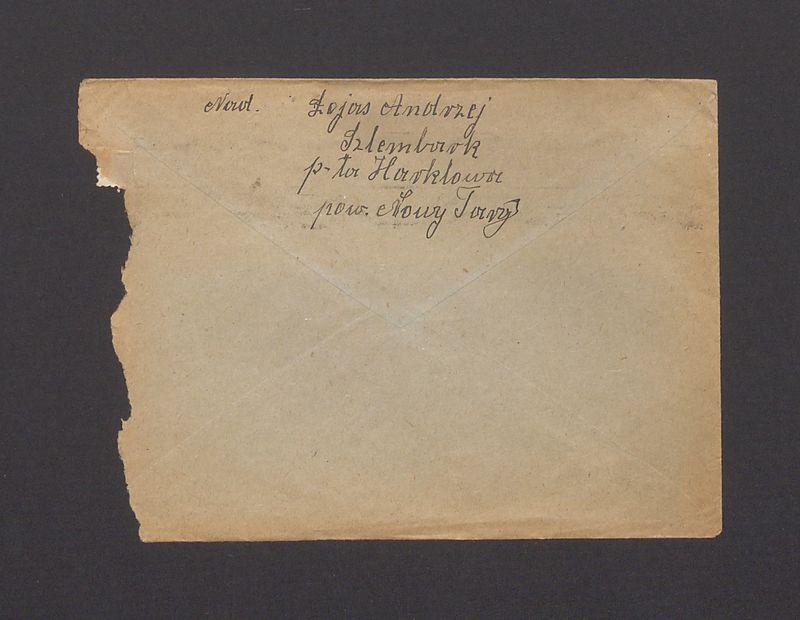 Nad. Łojas Andrzej
Szlembark
p-ta Harklowa
pow. Nowy Targ